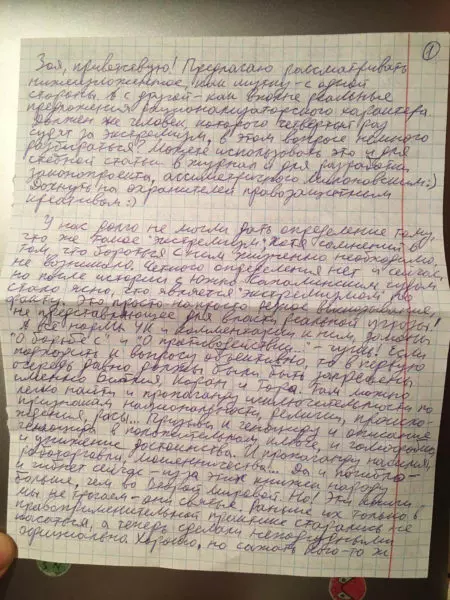 1
Зоя, приветствую! Предлагаю рассматривать
нижеизложенное, как шутку – с одной
стороны и с другой – как вполне реальные
предложения рационализаторского характера.
Должен же человек, которого четвертый раз
судят за экстремизм, в этом вопросе немного
разбираться? Можете использовать это и для
статьи в журнал и для разработки
законопроекта, ассиметричного милоновским :)
Дохнуть на охранителей правозащитным
креативом :)
У нас долго не могли дать определение тому,
что же такое экстремизм. Хотя сомнений в
том, что бороться с ним жизненно необходимо,
не возникало. Четкого определения нет и сейчас,
но после истории с Южно-Сахалинским судом
стало ясно, что является экстремизмом по
факту. Это просто резкое высказывание,
не представляющее для власти реальной угрозы!
А все нормы УК и комментарии к ним, законы
"О борьбе с" и "О противодействии" - чушь! Если
подходить к вопросу объективно, то в первую
очередь равно должны были быть запрещены
именно Библия, Коран и Тора. Там можно
легко найти и пропаганду исключительности по
признакам национальности, религии, происхо-
ждения, расы... Призывы к геноциду и описание
геноцида в положительном ключе, и
и унижение достоинства. И пропаганда насилия,
мошенничества... Да и погибло
и гибнет сейчас из-за этих книжек народу
больше, чем во Второй мировой. Но! Эти книги
мы не трогаем – они святые. Раньше их только в
правоприменительной практике старались не
касаться, а теперь сделали неподсудными
официально. Хорошо, но сажать кого-то ж